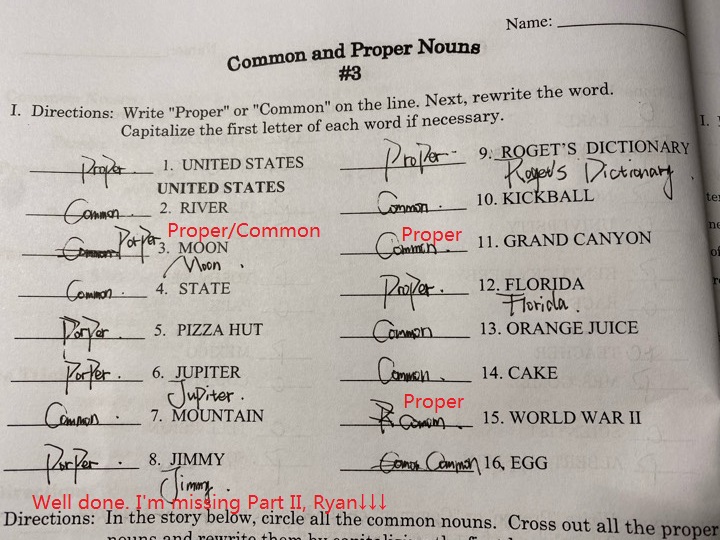 Name:
Common and Proper Nouns
#3
I. Directions: Write "Proper" or "Common" on the line. Next, rewrite the word.
Capitalize the first letter of each word if necessary.
Proper 1. UNITED STATES
UNITED STATES
Common. 2. RIVER
Proper/Common
Common Porper 3. MOON
Moon.
Common. 4. STATE
Porper 5. PIZZA HUT
Porper. 6. JUPITER
Jupiter.
Common. 7. MOUNTAIN
Porper. 8. JIMMY
Jimmy.
Proper 9. ROGET'S DICTIONARY
Roget's Dictionary.
Common. 10. KICKBALL
Proper
Common. 11. GRAND CANYON
Proper. 12. FLORIDA
Florida.
Common 13. ORANGE JUICE
Common. 14. CAKE
Proper
15. WORLD WAR II
Common 16, EGG
Well done. I'm missing Part II, Ryan↓↓↓
Directions: In the story below, circle all the common nouns. Cross out all the proper
nouns and rewrite them by
I.